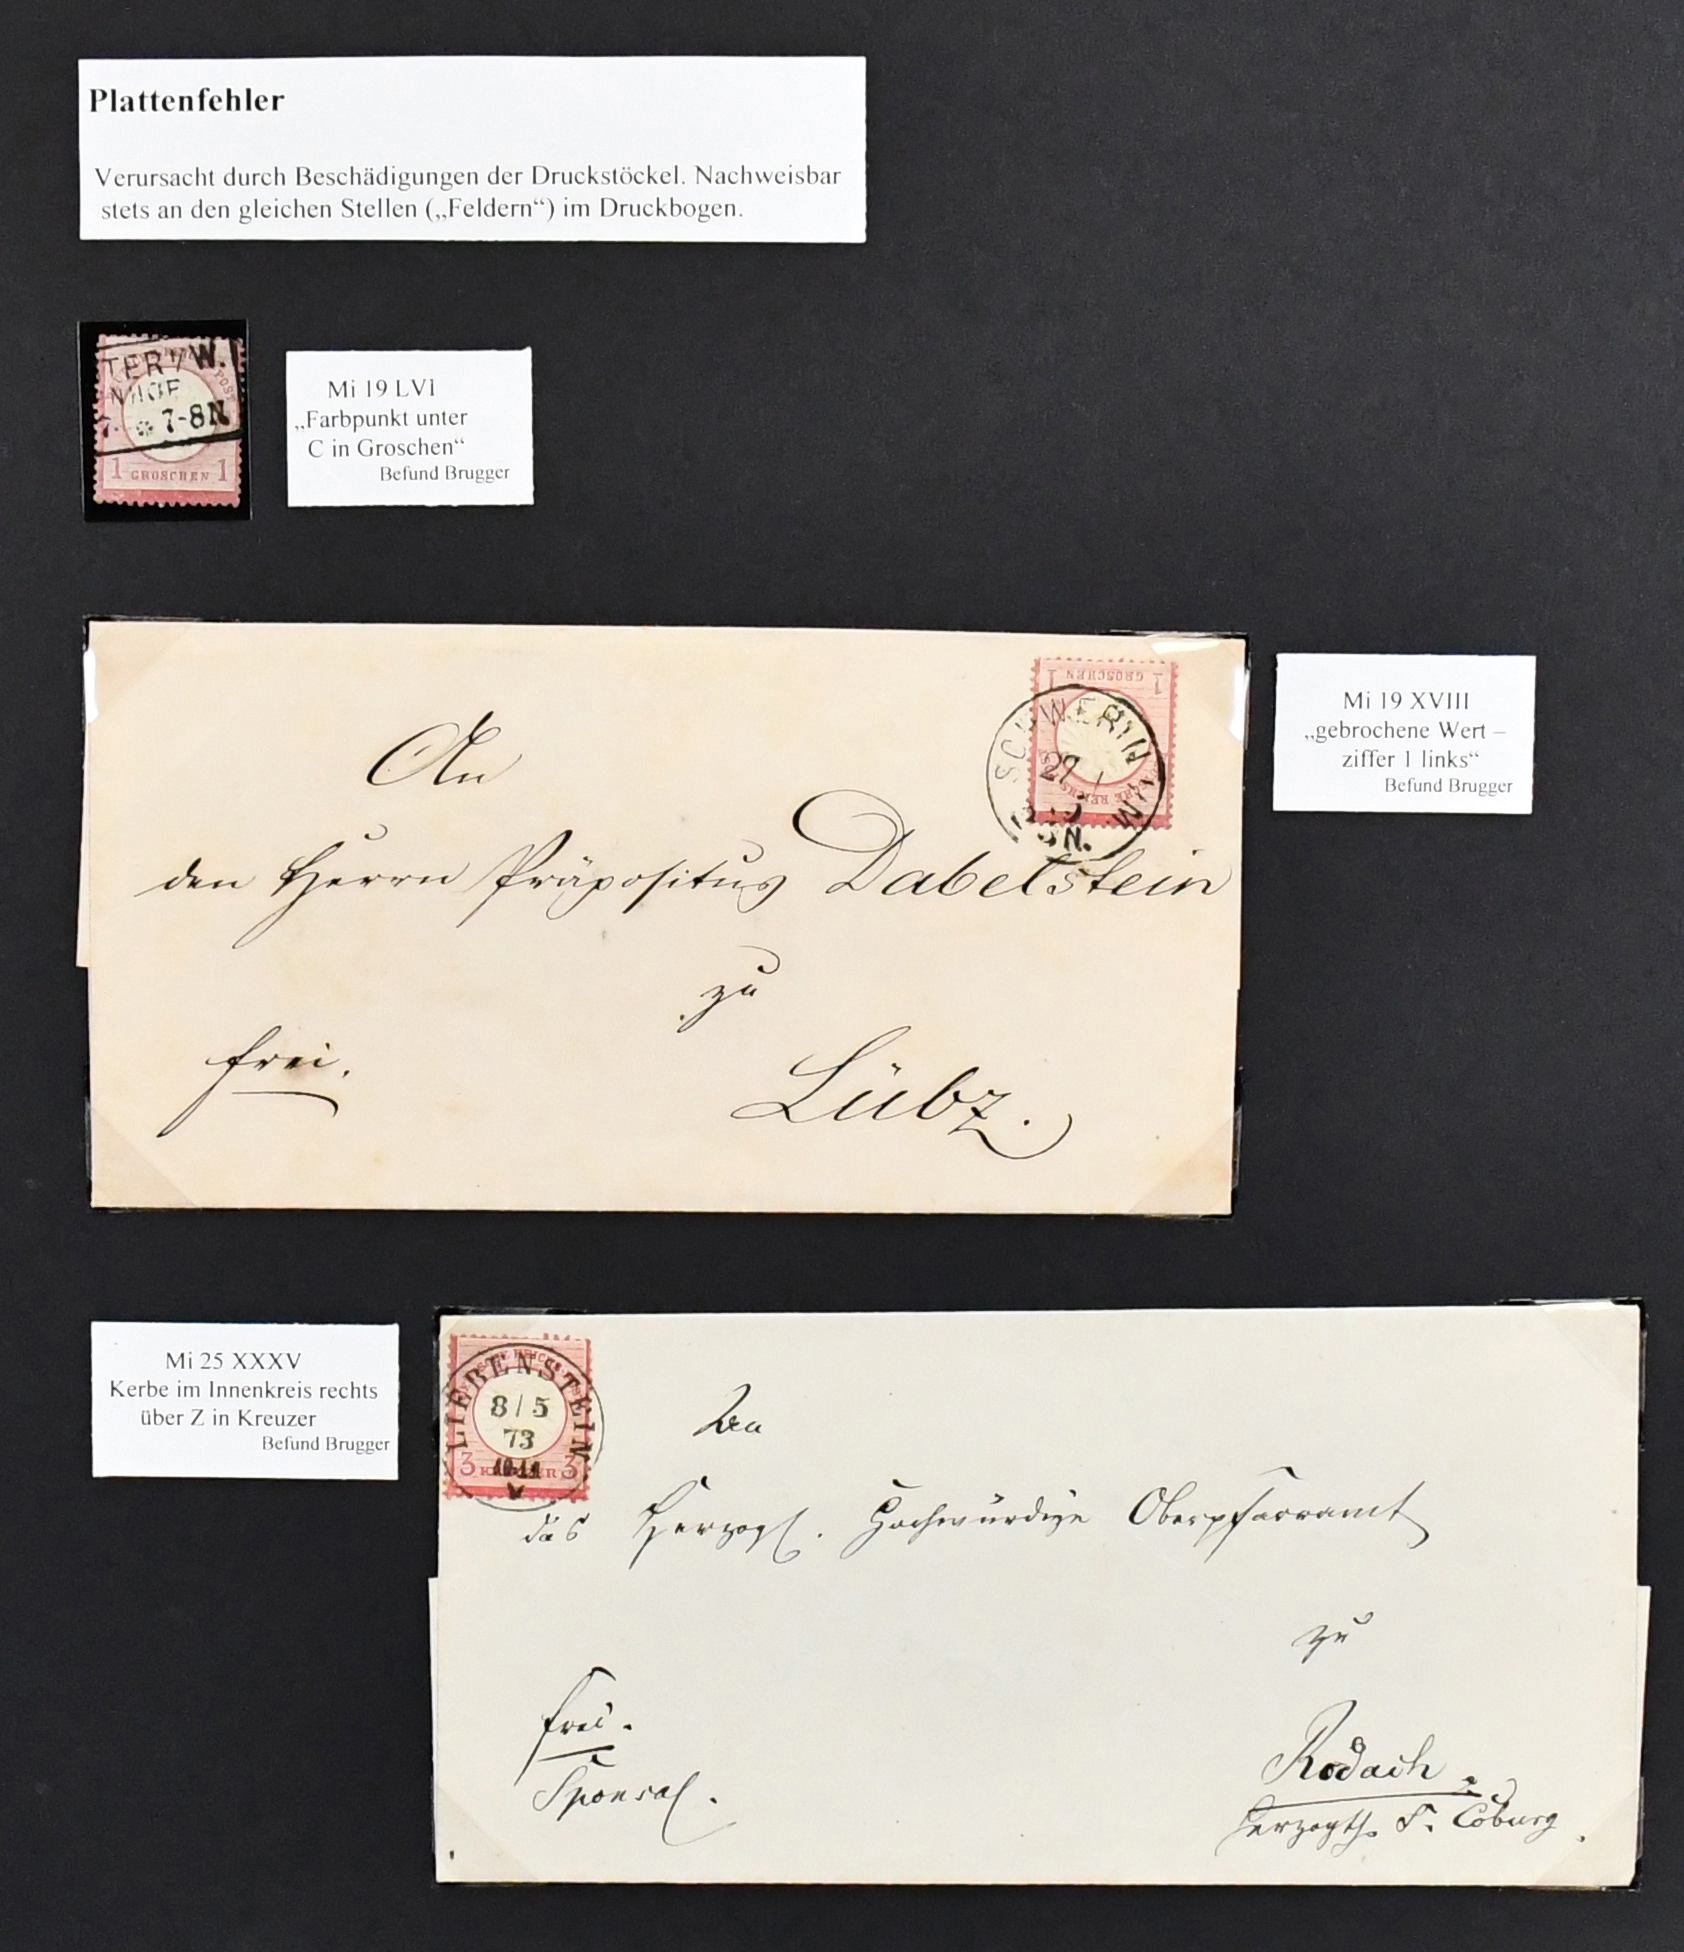 Plattenfehler
Verursacht durch Beschädigungen der Druckstöckel. Nachweisbar
stets an den gleichen Stellen („Feldern“) im Druckbogen.
TER I/W.
7-8N
1 GROSCHEN 1
Mi 19 LVI
„Farbpunkt unter
C in Groschen“
Befund Brugger
1 GROSCHEN 1
SCHWERIN I/M.
29 1
Mi 19 XVIII
„gebrochene Wert –
ziffer 1 links“
Befund Brugger
An
den Herrn Präpositus Dabelstein
zu
frei.
Lübz.
Mi 25 XXXV
Kerbe im Innenkreis rechts
über Z in Kreuzer
Befund Brugger
LIEBENSTEIN
8 / 5
73
3 KREUZER 3
An
das Herzogl. Hochwürdige Oberpfarramt
zu
frei.
Sponsal.
Rodach
Herzogth. S. Coburg.